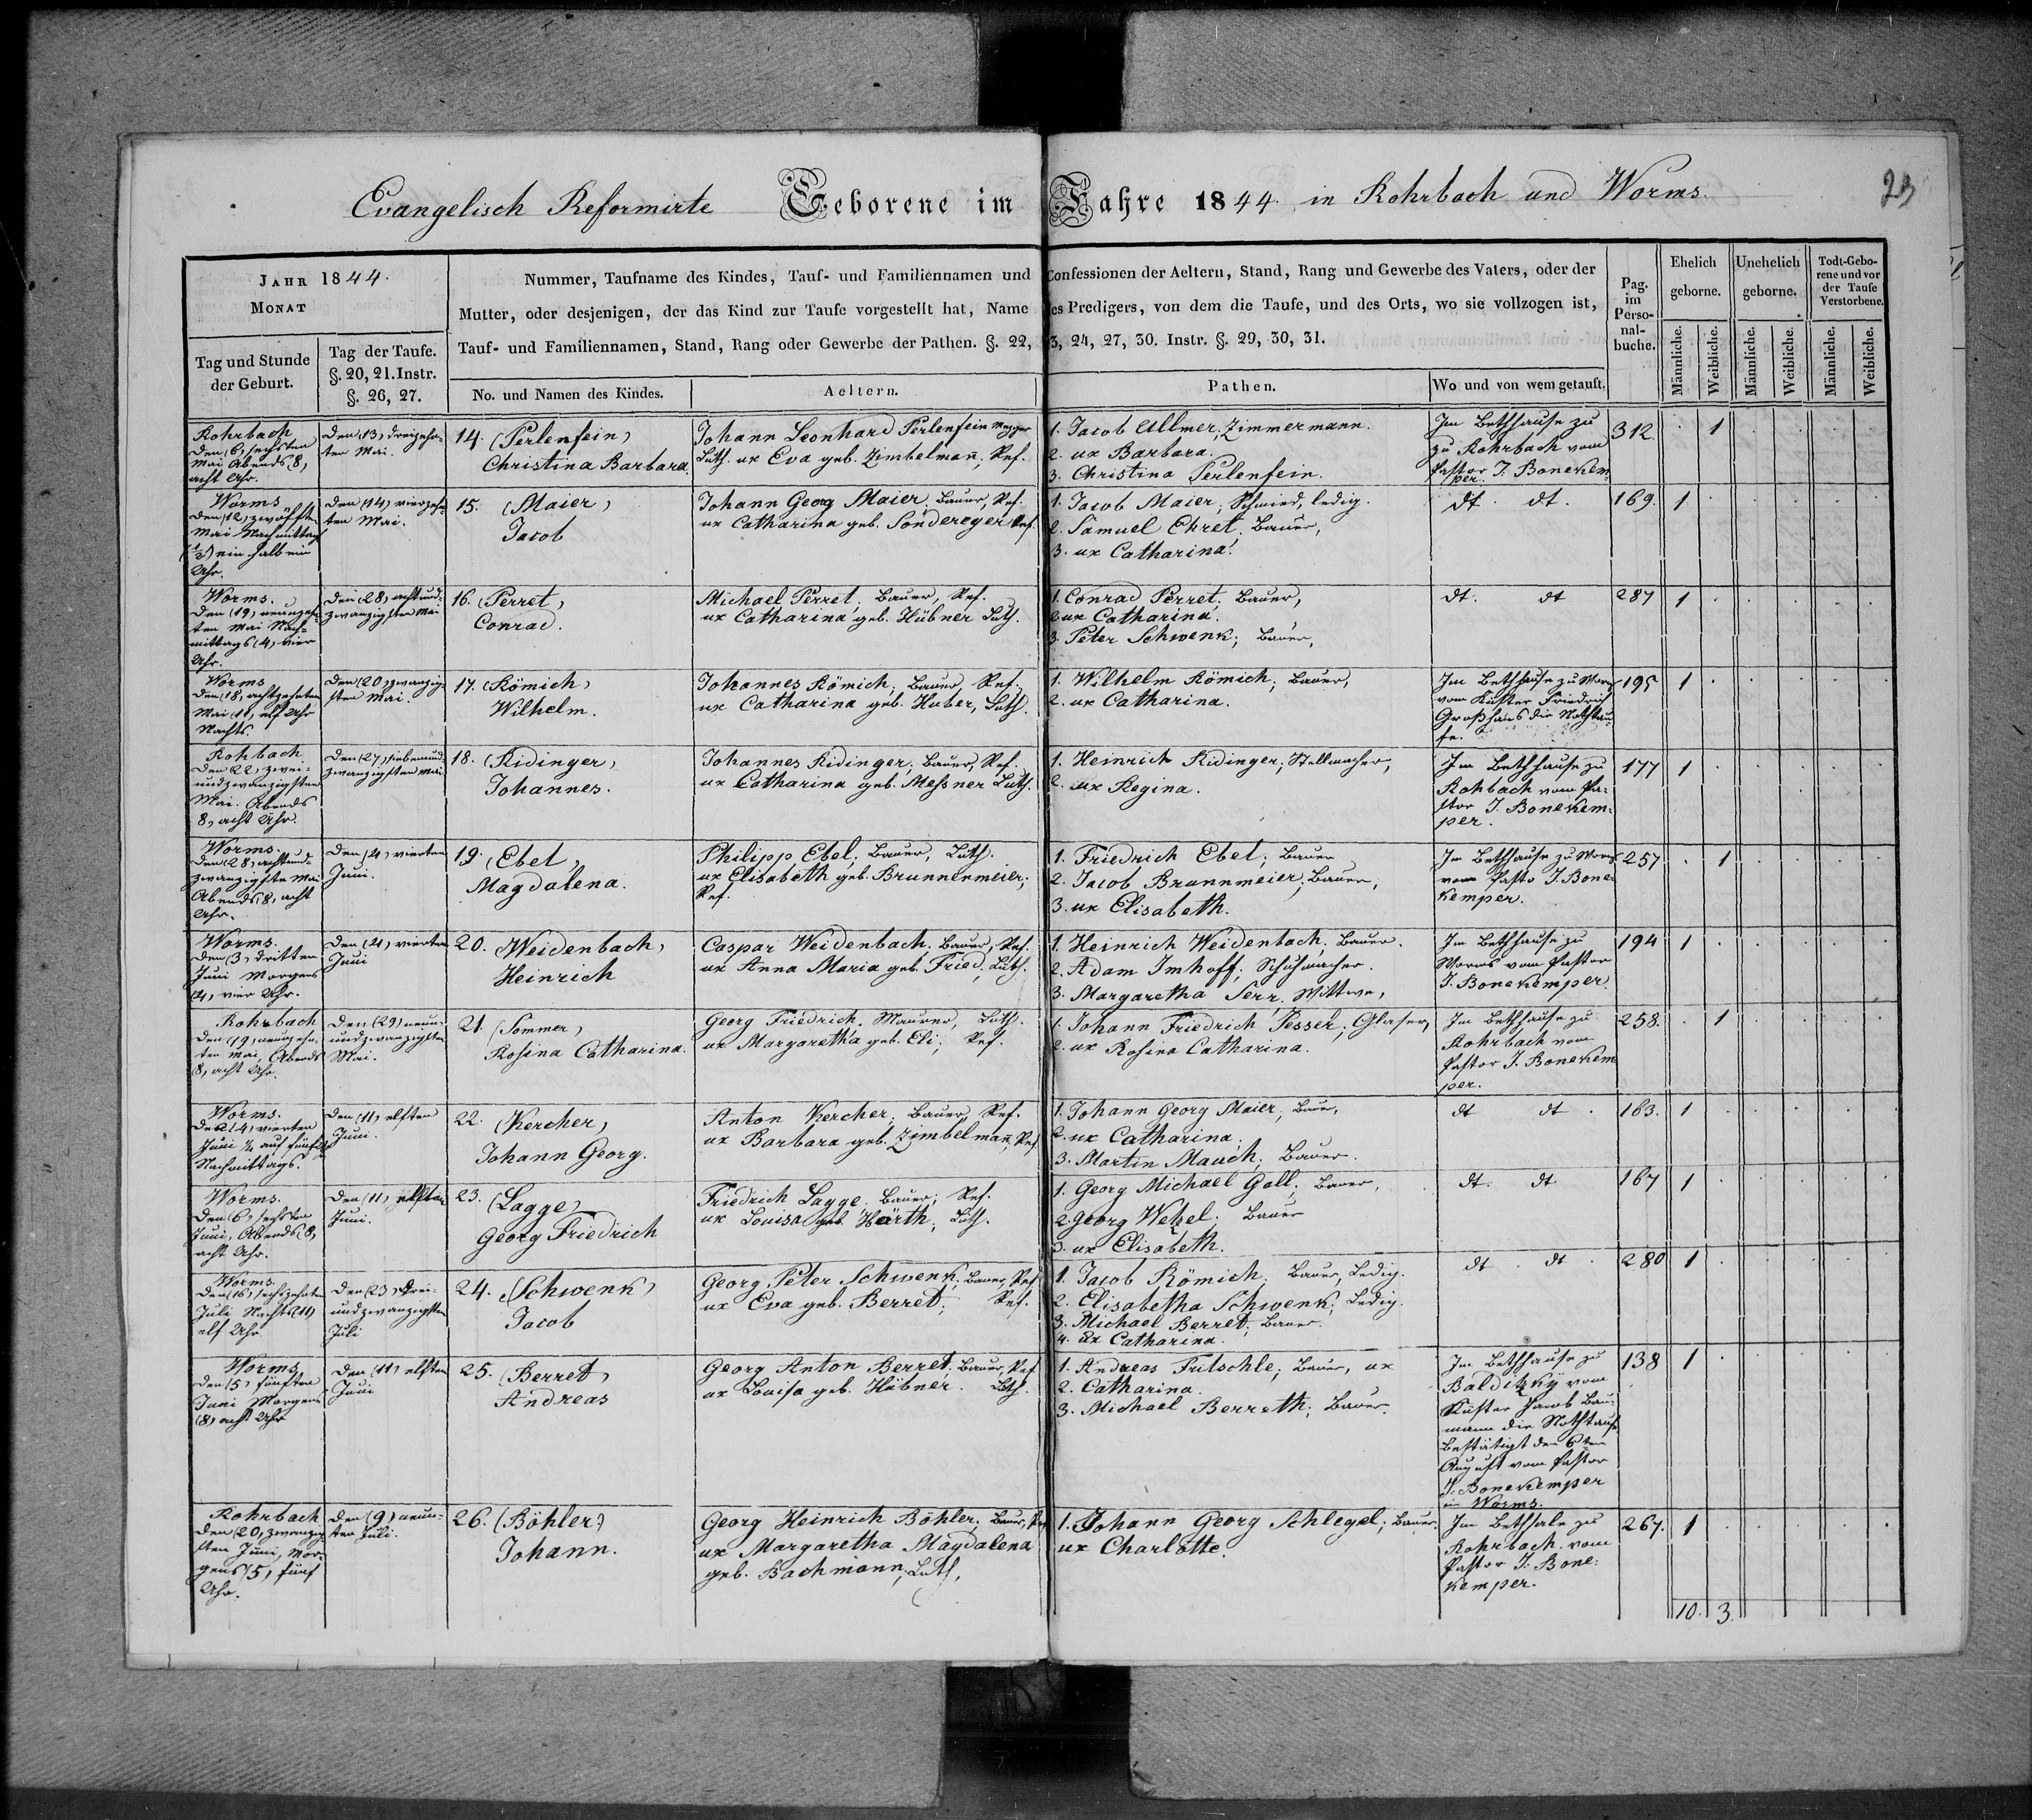 Evangelisch Reformirte Geborene im Jahre 1844. in Rohrbach und Worms.
29
Jahr 1844.
Monat
Tag und Stunde
der Geburt.
Tag der Taufe.
§. 20, 21. Instr.
§. 26, 27.
Nummer, Taufname des Kindes, Tauf- und Familiennamen und Confessionen der Aeltern, Stand, Rang und Gewerbe des Vaters, oder der
Mutter, oder desjenigen, der das Kind zur Taufe vorgestellt hat, Name es Predigers, von dem die Taufe, und des Orts, wo sie vollzogen ist,
Tauf- und Familiennamen, Stand, Rang oder Gewerbe der Pathen. §. 22, 3, 24, 27, 30. Instr. §. 29, 30, 31.
No. und Namen des Kindes.
Aeltern.
Pathen.
Wo und von wem getauft.
Pag.
im
Perso-
nal-
buche.
Ehelich
geborne.
Unehelich
geborne.
Todt-Gebo-
rene und vor
der Taufe
Verstorbene.
Männliche.
Weibliche.
Männliche.
Weibliche.
Männliche.
Weibliche.
Rohrbach
Den (6) sechsten
Mai Abends (8)
acht Uhr.
Den (13) dreizehn-
ten Mai.
14. (Perlenfein)
Christina Barbara.
Johann Leonhard Perlenfein Mezger
Luth. ux Eva geb. Zimbelmañ, Ref.
1. Jacob Ullmer, Zimmermann.
2. ux Barbara.
3. Christina Perlenfein.
Im Bethhause zu
zu Rohrbach vom
Pastor J. Bonekem-
per.
312. 1
Worms
Den (12) zwölften
Mai Nachmittag
(½) ein halb ein
Uhr.
Den (14) vierzehn-
ten Mai.
15. (Maier)
Jacob
Johann Georg Maier, Bauer, Ref.
ux Catharina geb. Sondereger Ref.
1. Jacob Maier, Schmied, ledig.
2. Samuel Ehret, Bauer,
3. ux Catharina.
dt. dt.
169. 1
Worms.
Den (19) neunzehn-
ten Mai Nach-
mittags (4) vier
Uhr.
Den (28) achtund-
zwanzigsten Mai
16. (Perret)
Conrad.
Michael Perret, Bauer, Ref.
ux Catharina geb. Hübner Luth.
1. Conrad Perret, Bauer,
2. ux Catharina.
3. Peter Schwenk, Bauer,
dt. dt
287 1
Worms
Den (18) achtzehnten
Mai (11) elf Uhr
Nachts.
Den (20) zwanzig-
sten Mai.
17. (Römich)
Wilhelm.
Johannes Römich, Bauer, Ref.
ux Catharina geb. Huber, Luth.
1. Wilhelm Römich, Bauer,
2. ux Catharina.
Im Bethhause zu Worms
vom Küster Friedrich
Großhans die Nothtau-
fe.
195 1
Rohbach
Den 22, zwei-
undzwanzigsten
Mai. Abends
8, acht Uhr.
Den (27) siebenund-
zwanzigsten Mai
18. (Ridinger)
Johannes.
Johannes Ridinger, Bauer, Ref.
ux Catharina geb. Messner Luth.
1. Heinrich Ridinger, Stellmacher,
2. ux Regina.
Im Bethhause zu
Rohbach vom Pa-
stor J. Bonekem-
per.
177 1
Worms.
Den (28) achtund-
zwanzigste Mai
Abends (8) acht
Uhr.
Den (4) vierten
Juni.
19. (Ebel)
Magdalena.
Philipp Ebel, Bauer, Luth.
ux Elisabeth geb. Brunnenmeier,
Ref.
1. Friedrich Ebel, Bauer
2. Jacob Brunnmeier, Bauer,
3. ux Elisabeth.
Im Bethhause zu Worms
vom Pasto J. Bone-
kemper.
257 1
Worms.
Den (3) dritten
Juni Morgens
(4) vier Uhr.
Den (4) vierten
Juni
20. (Weidenbach)
Heinrich
Caspar Weidenbach, Bauer, Ref.
ux Anna Maria geb. Fried, Luth.
1. Heinrich Weidenbach, Bauer.
2. Adam Imhoff, Schuhmacher.
3. Margaretha Serr, Wittwe,
Im Bethhause zu
Worms vom Pastor
J. Bonekemper.
194 1
Rohrbach
Den (19) neunzehn-
ten Mai, Abends
8, acht Uhr.
Den (29) neun-
undzwanzigsten
Mai.
21. (Sommer)
Rosina Catharina.
Georg Friedrich, Maurer, Luth.
ux Margaretha geb. Eli, Ref.
1. Johann Friedrich Pesser, Glaser,
2. ux Rosina Catharina.
Im Bethhause zu
Rohrbach vom
Pastor J. Bonekem
per.
258. 1
Worms.
Den (4) vierten
Juni ¼ auf fünf Uhr
Nachmittags.
Den (11) elften
Juni.
22. (Kercher)
Johann Georg.
Anton Kercher, Bauer, Ref.
ux Barbara geb. Zimbelmañ, Ref
1. Johann Georg Maier, Bauer,
2. ux Catharina.
3. Martin Mauch, Bauer.
dt dt.
163. 1
Worms.
Den (6) sechsten
Juni, Abends (8)
acht Uhr.
Den (11) elften
Juni.
23. (Lagge)
Georg Friedrich
Friedrich Lagge, Bauer, Ref.
ux Louisa geb. Härth, Luth.
1. Georg Michael Gall, Bauer,
2. Georg Wetzel, Bauer
3. ux Elisabeth.
dt. dt.
167 1
Worms.
Den (16) sechzehnten
Juli Nachts (11)
elf Uhr.
Den (23) drei-
undzwanzigsten
Juli
24. (Schwenk)
Jacob
Georg Peter Schwenk, Bauer, Ref
ux Eva geb. Berret, Ref.
1. Jacob Römich, Bauer, Ledig.
2. Elisabetha Schwenk, Ledig.
3. Michael Berret, Bauer.
4. ux Catharina.
dt. dt.
280 1
Worms
Den (5) fünften
Juni Morgens
(8) acht Uhr
Den (11) elften
Juni
25. (Berret)
Andreas
Georg Anton Berret, Bauer, Ref
ux Louisa geb. Hübner. Luth.
1. Andreas Fritschle, Bauer, ux
2. Catharina.
3. Michael Berreth, Bauer.
Im Bethhause zu
Balditzky vom
Küster Jacob Bau-
mann die Nothtaufe
bestätigt den 6ten
August vom Pastor
J. Bonekemper
in Worms.
138 1
Rohrbach
Den (20) zwanzig-
sten Juni, Mor-
gens (5) fünf
Uhr.
Den (9) neun-
ten Juli.
26. (Böhler)
Johann.
Georg Heinrich Böhler, Bauer, Ref
ux Margaretha Magdalena
geb. Bachmann, Luth.
1. Johann Georg Schlegel, Bauer.
ux Charlotte.
Im Bethsale zu
Rohrbach vom
Pastor J. Bone-
kemper.
267. 1
10. 3.